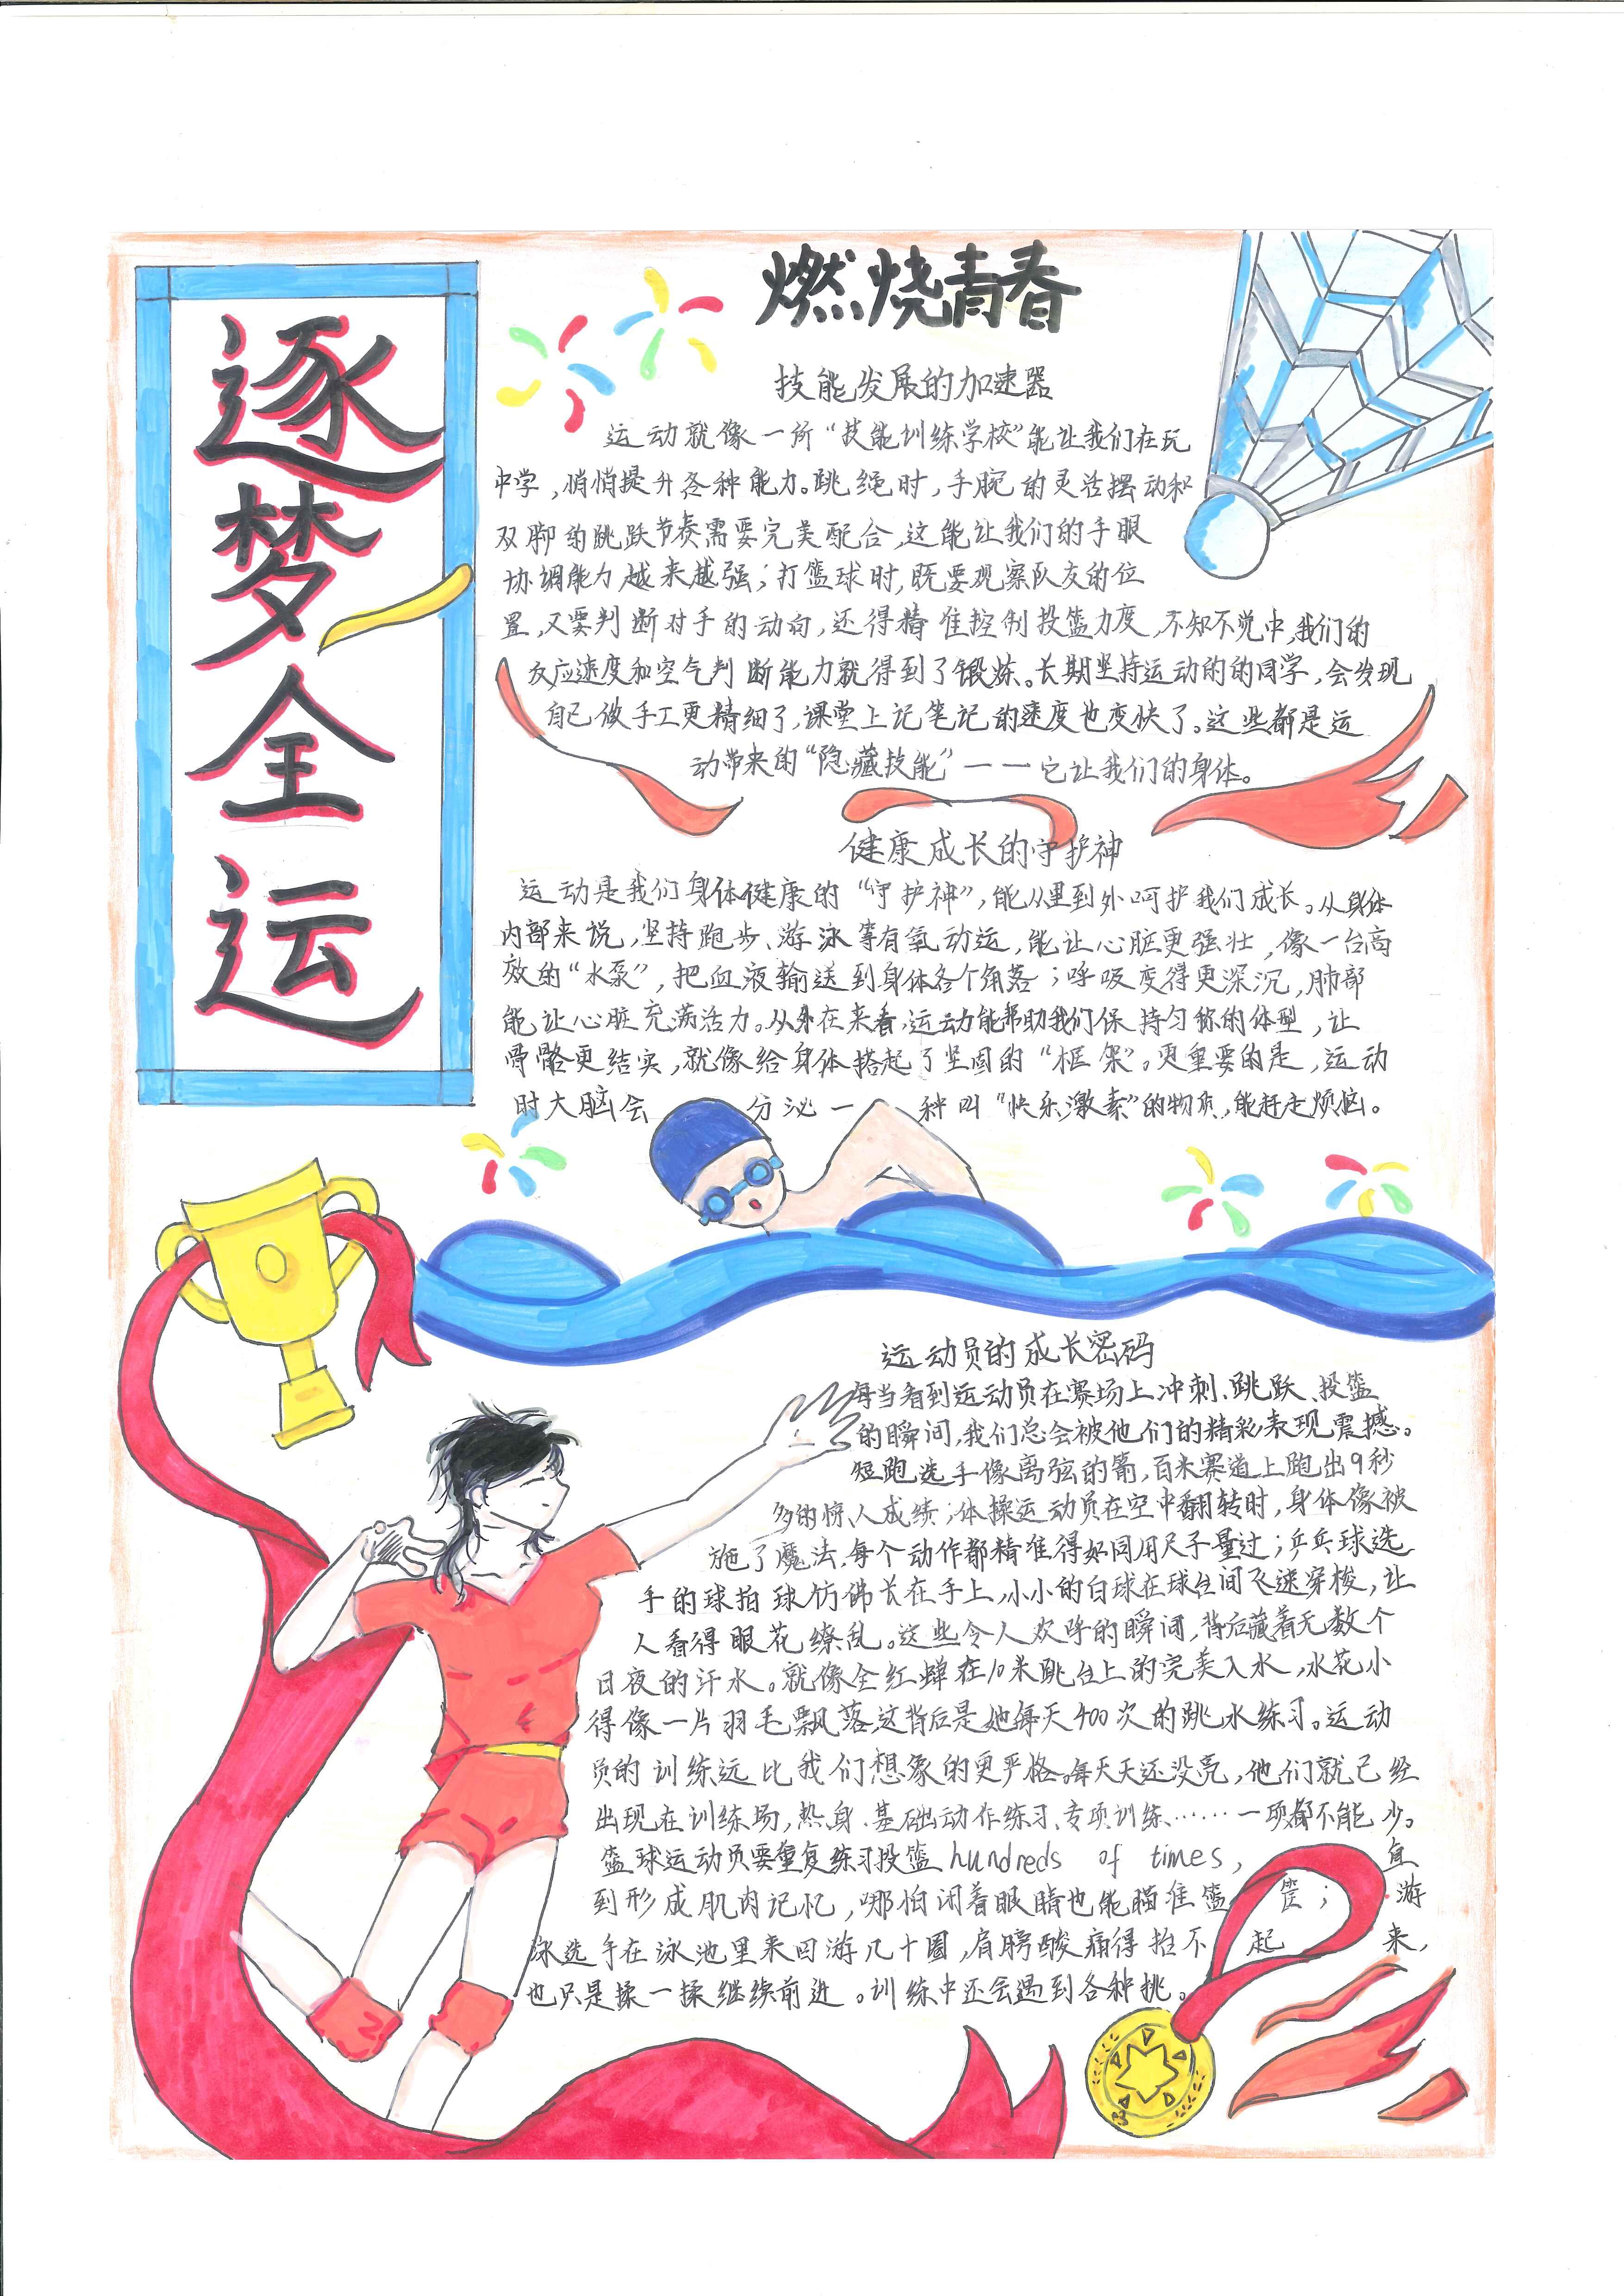 逐梦全运
燃烧青春
技能发展的加速器
运动就像一所“技能训练学校”能让我们在玩
中学，悄悄提升各种能力。跳绳时，手腕的灵活摆动和
双脚的跳跃节奏需要完美配合，这能让我们的手眼
协调能力越来越强；打篮球时，既要观察队友的位
置，又要判断对手的动向，还得精准控制投篮力度，不知不觉中，我们的
反应速度和空气判断能力就得到了锻炼。长期坚持运动的的同学，会发现
自己做手工更精细了，课堂上记笔记的速度也变快了。这些都是运
动带来的“隐藏技能”——它让我们的身体。
健康成长的守护神
运动是我们身体健康的“守护神”，能从里到外呵护我们成长。从身体
内部来说，坚持跑步、游泳等有氧动运，能让心脏更强壮，像一台高
效的“水泵”，把血液输送到身体各个角落；呼吸变得更深沉，肺部
能让心脏充满活力。从外在来看，运动能帮助我们保持匀称的体型，让
骨骼更结实，就像给身体搭起了坚固的“框架”。更重要的是，运动
时大脑会分泌一种叫“快乐激素”的物质，能赶走烦恼。
运动员的成长密码
每当看到运动员在赛场上冲刺、跳跃、投篮
的瞬间，我们总会被他们的精彩表现震撼。
短跑选手像离弦的箭，百米赛道上跑出9秒
多的惊人成绩；体操运动员在空中翻转时，身体像被
施了魔法，每个动作都精准得如同用尺子量过；乒乓球选
手的球拍球仿佛长在手上，小小的白球在球台间飞速穿梭，让
人看得眼花缭乱。这些令人欢呼的瞬间，背后藏着无数个
日夜的汗水。就像全红蝉在10米跳台上的完美入水，水花小
得像一片羽毛飘落，这背后是她每天400次的跳水练习。运动
员的训练远比我们想象的更严格。每天天还没亮，他们就已经
出现在训练场，热身、基础动作练习、专项训练……一项都不能少。
篮球运动员要重复练习投篮hundreds of times，直
到形成肌肉记忆，哪怕闭着眼睛也能瞄准篮筐；游
泳选手在泳池里来回游几十圈，肩膀酸痛得抬不起来，
也只是揉一揉继续前进。训练中还会遇到各种挑。